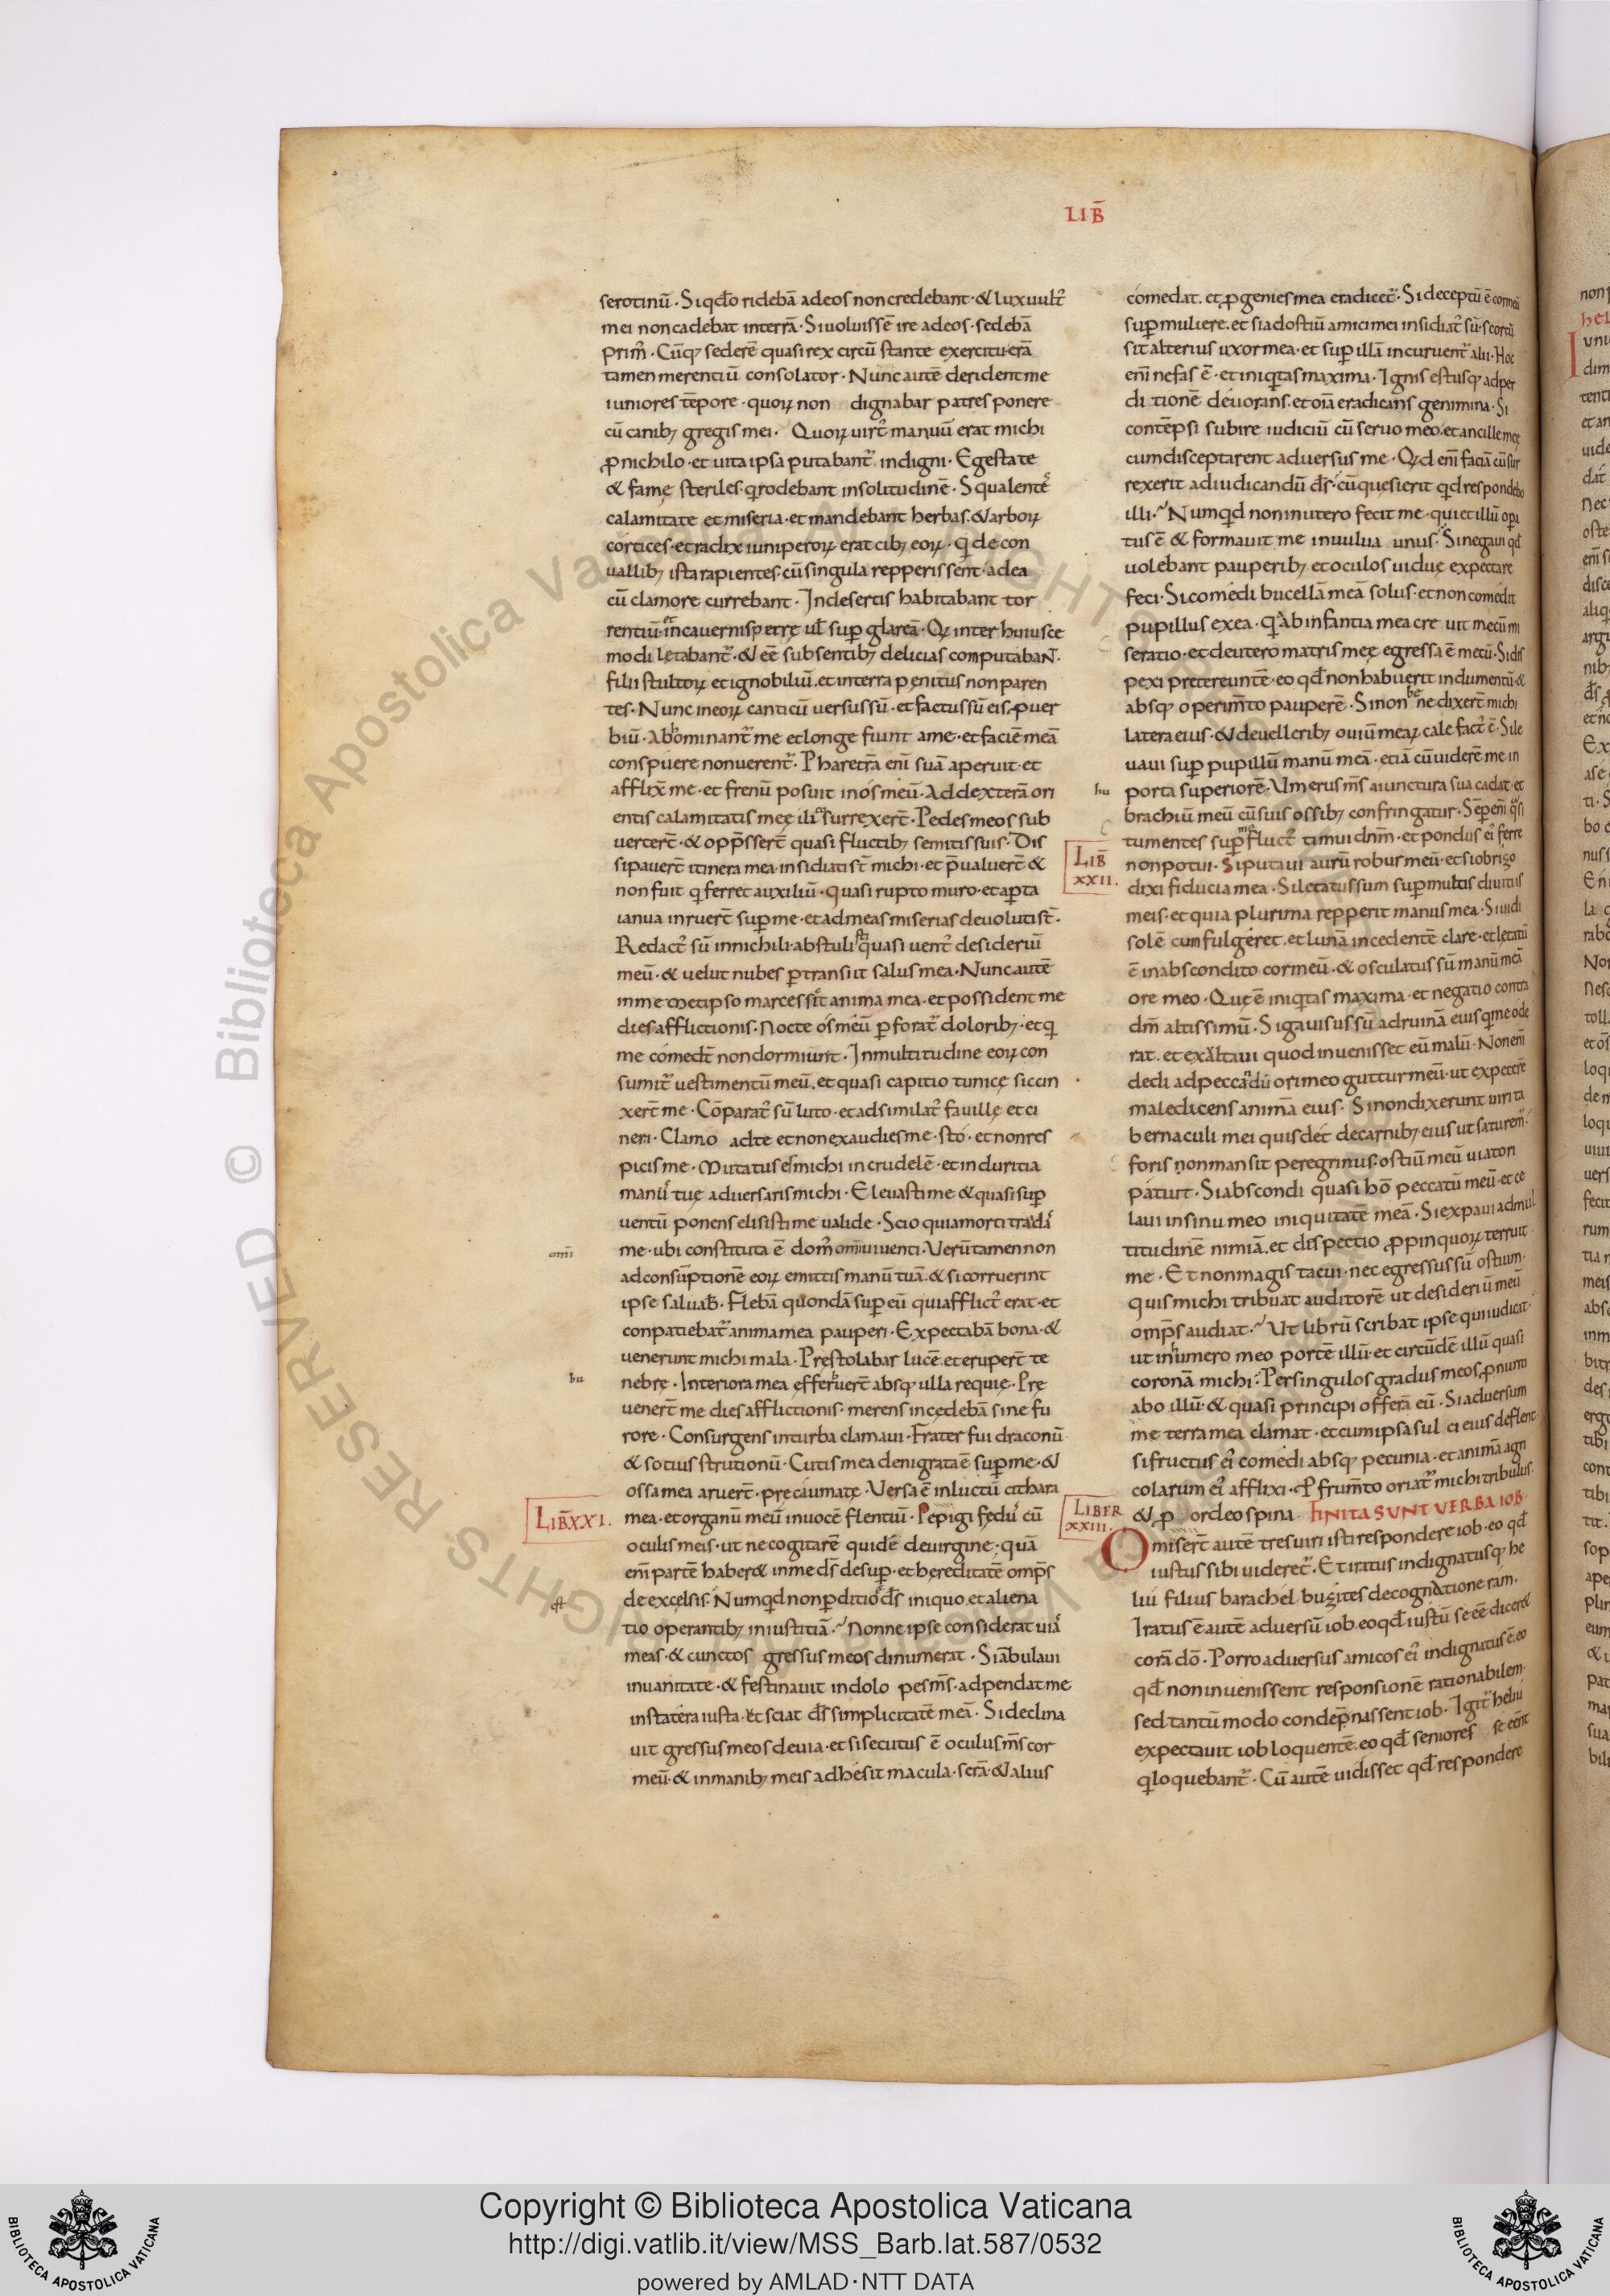 LIB̄
serotinū · Siqđo ridebā adeos non credebant · & lux uult᷒
mei non cadebat interrā · Si uoluissē ire adeos · sedebā
prim᷒ · Cūq; sederē quasi rex circū stante exercitu · erā
tamen merentiū consolator · Nunc autē derident me
iuniores tēpore · quoꝝ non dignabar patres ponere
cū canib; gregis mei · Quoꝝ uirt᷒ manuū erat michi
ꝓnichilo · et uita ipsa putabant᷒ indigni · Egestate
& famę steriles · qrodebant insolitudinē · Squalente᷒
calamitate et miseria · et mandebant herbas · & arboꝝ
cortices · et radix iuniperoꝝ erat cib; eoꝝ · q̇ de con
uallib; ista rapientes · cū singula repperissent · adea
cū clamore currebant · Indesertis habitabant tor
rentiū · incauernis petrę ul̄ suꝑ glareā · Qꝫ inter huiusce
modi letabant᷒ · & eē subsentib; delicias computabaɴ ·
filii stultoꝝ et ignobiliū · et interra penitus non paren
tes · Nunc ineoꝝ canticū uersus sū · et factus sū eis ꝓuer
biū · Abhominant᷒ me et longe fiunt ame · et faciē meā
conspuere non uerent᷒ · Pharetrā enī suā aperuit · et
afflix̄ me · et frenū posuit in os meū · Addexterā ori
entis calamitatis meę ilico surrexer̄t · Pedes meos sub
uerter̄t · & opp̄sser̄t quasi fluctib; semitis suis · Dis
sipauer̄t itinera mea · insidiati st̄ michi · et p̄ualuer̄t &
non fuit q ferret auxiliū · Quasi rupto muro · et aꝑta
ianua inruer̄t suꝑ me · et ad meas miserias deuoluti st̄ ·
Redact᷒ sū innichili · abstulisti quasi uent᷒ desideriū
meū · & uelut nubes ꝑtransiit salus mea · Nunc autē
inme metipso marcessit anima mea · et possident me
dies afflictionis · Nocte os meū ꝑforat᷒ dolorib; · et q
me comedt̄ non dormiunt · Inmultitudine eoꝝ con
sumit᷒ uestimentū meū · et quasi capitio tunicę siccin
xer̄t me · Cōparat᷒ sū luto · et adsimilat᷒ fauillę et ci
neri · Clamo adte et non exaudies me · sto · et non res
picis me · Mutatus es michi in crudelē · et in duritia
manu᷒ tuę aduersaris michi · Eleuasti me & quasi suꝑ
uentū ponens elisisti me ualide · Scio quia morti trada᷒
omī
me · ubi constituta ē dom᷒ omī uiuenti · Verū tamen non
ad consūptionē eoꝝ emittis manū tuā · & si corruerint
ipse saluab̄ · Flebā quondā suꝑ eū qui afflict᷒ erat · et
conpatiebat᷒ anima mea pauperi · Expectabā bona · &
uenerunt michi mala · Prestolabar lucē · et eruper̄t te
bu
nebrę · Interiora mea efferbuer̄t absq; ulla requie · Prę
uener̄t me dies afflictionis · merens incedebā sine fu
rore · Consurgens in turba clamaui · Frater fui draconū
& socius strutionū · Cutis mea denigrata ē suꝑ me · &
ossa mea aruer̄t · prę caumate · Versa ē in luctū cithara
LIB̄ XXI.
mea · et organū meū in uocē flentiū · Pepigi fedu᷒ cū
oculis meis · ut ne cogitarē quidē de uirgine · quā
enī partē haber& in me dſ̄ desuꝑ · et hereditatē omp̄s
de excelsis · Numqd non ꝑditio ē iniquo · et aliena
tio operantib; iniustitiā · Nonne ipse considerat uia᷒
meas · & cunctos gressus meos dinumerat · Si ābulaui
in uanitate · & festinauit in dolo pes m̄s · adpendat me
in statera iusta · et sciat dſ̄ simplicitatē meā · Si declina
uit gressus meos deuia · et si secutus ē oculus m̄s cor
meū · & in manib; meis adhesit macula · serā · & alius
comedat · et ꝓgenies mea eradicet᷒ · Si deceptū ē cor meū
suꝑ muliere · et si ad ostiū amici mei insidiat᷒ sū · scortū
sit alterius uxor mea · et suꝑ illā incuruent᷒ alii · Hoc
enī nefas ē · et iniqtas maxima · Ignis est usq; ad per
ditionē deuorans · et oīa eradicans genimina · Si
contēpsi subire iudiciū cū seruo meo · et ancille meę
cum disceptarent aduersus me · Qꝫd enī faciā cū sur
rexerit ad iudicandū dſ̄ · cū quesierit qd respondebo
illi · Numqd non in utero fecit me · qui et illū opa
tus ē & formauit me in uulua unus · Si negaui qđ
uolebant pauperib; et oculos uiduę expectare
feci · Si comedi bucellā meā solus · et non comedit
pupillus ex ea · Q̇ ab infantia mea creuit mecū mi
seratio · et deutero matris meę egressa ē mecū · Si dis
pexi pretereuntē · eo qđ non habuerit indumentū · &
absq; operim̄to pauperē · Si non benedixer̄t michi
latera eius · & de uellerib; ouiū meaꝝ calefact᷒ ē · Si le
uaui suꝑ pupillū manū meā · etiā cū uiderē me in
bu
porta superiorē · Umerus m̄s a iunctura sua cadat · et
brachiū meū cū suis ossib; confringatur · Sēꝑ enī q̇si
tumentes suꝑ me fluct᷒ timui dn̄m · et pondus ei᷒ ferre
LIB̄
XXII.
non potui · Si putaui aurū robur meū · et si obrizo
dixi fiducia mea · Si letatus sum suꝑ multis diuitiis
meis · et quia plurima repperit manus mea · Si uidi
solē cum fulgeret · et lunā incedentē clare · et lętatū
ē in abscondito cor meū · & osculatus sū manū meā
ore meo · Quę ē iniqtas maxima · et negatio contra
dm̄ altissimū · Si gauisus sū ad ruinā eius q me ode
rat · et exaltaui quod inuenisset eū malū · Non enī
dedi ad peccandū ori meo guttur meū · ut expeterē
maledicens animā eius · Si non dixerunt uiri ta
bernaculi mei quis det de carnib; eius ut saturem᷒ ·
foris non mansit peregrinus · ostiū meū uiatori
patuit · Si abscondi quasi hō peccatū meū · et ce
laui in sinu meo iniquitatē meā · Si expaui ad mul
titudinē nimiā · et dispectio ꝓpinquoꝝ terruit
me · Et non magis tacui · nec egressus sū ostium ·
Quis michi tribuat auditorē ut desideriū meū
omp̄s audiat · Ut librū scribat ipse qui iudicat ·
ut in humero meo portē illū · et circūdē illū quasi
coronā michi · Per singulos gradus meos ꝓnunti
abo illū · & quasi principi offerā eū · Si aduersum
me terra mea clamat · et cum ipsa sulci eius deflent
si fructus ei᷒ comedi absq; pecunia · et animā agri
colarum ei᷒ afflixi · P frum̄to oriat᷒ michi tribulus ·
LIBER
XXIII.
& ꝓ ordeo spina · FINITA SUNT VERBA IOB ·
Omiser̄t autē tres uiri isti respondere iob · eo qđ
iustus sibi uideret᷒ · Et iratus indignatusq; he
liu filius barachel buzites de cognatione ram ·
Iratus ē autē aduersū iob · eo qđ iustū se eē dicer&
corā dō · Porro aduersus amicos ei᷒ indignatus ē · eo
qđ non inuenissent responsionē rationabilem ·
sed tantū modo condēpnassent iob · Igit᷒ heliu
expectauit iob loquentē · eo qđ seniores se eēnt
q loquebant᷒ · Cū autē uidisset qđ respondere
Copyright © Biblioteca Apostolica Vaticana
http://digi.vatlib.it/view/MSS_Barb.lat.587/0532
powered by AMLAD·NTT DATA
BIBLIOTECA APOSTOLICA VATICANA
BIBLIOTECA APOSTOLICA VATICANA